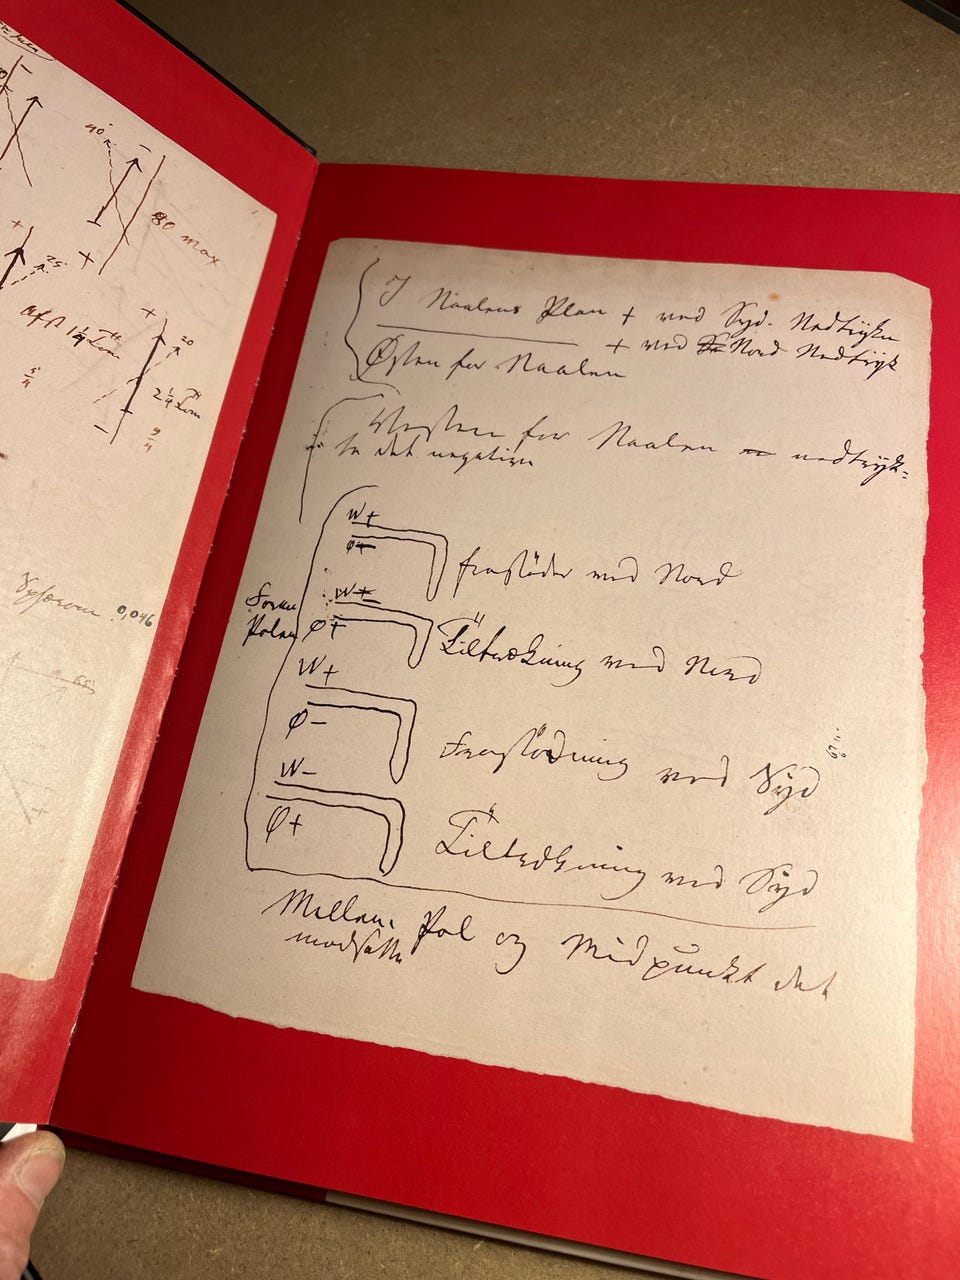 90
80 max
+
25
+
Afst 1 1/4 Tom
5/4
+
20
2 1/4 Tom
9/4
0,046
I Naalens Plan + ved Syd. Nedtrykn
+ ved Nord Nedtryk
Østen for Naalen
Vesten for Naalen nedtryk=
te det negative
W+
Ø−
frastöder med Nord
Foran
Polen
W−
Ø+
Tiltrækning med Nord
W+
Ø−
Frastödning med Syd
W−
Ø+
Tiltrækning med Syd
Mellem Pol og Midpunkt det
modsatte